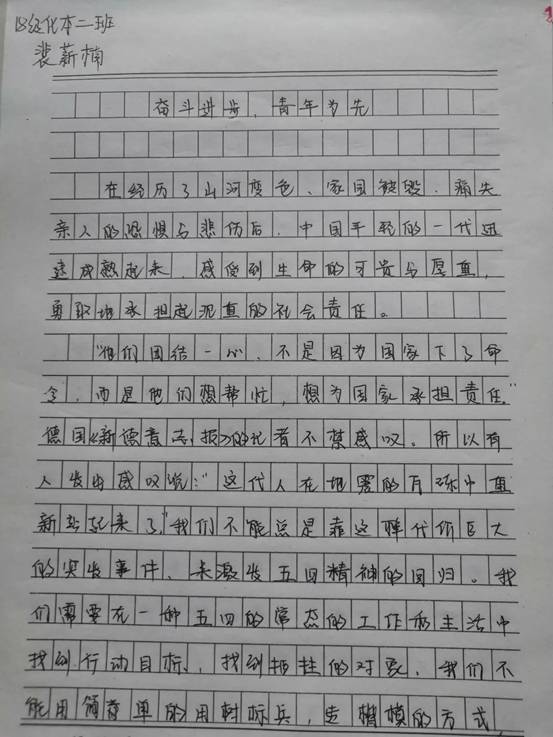 18级化本二班
裴薪楠
奋斗进步，青年为先
在经历了山河变色、家园被毁、痛失
亲人的恐惧与悲伤后，中国年轻的一代迅
速成熟起来，感受到生命的可贵与厚重，
勇敢地承担起沉重的社会责任。
“他们团结一心，不是因为国家下了命
令，而是他们想帮忙，想为国家承担责任。”
德国《新德意志报》的记者不禁感叹。所以有
人发出感叹说：“这代人在地震的石砾中重
新站起来了。”我们不能总是靠这种代价巨大
的突发事件，来激发五四精神的回归。我
们需要在一种五四的常态的工作和生活中
找到行动目标，找到牺牲的对象，我们不
能用简单的用树标兵，学楷模的方式